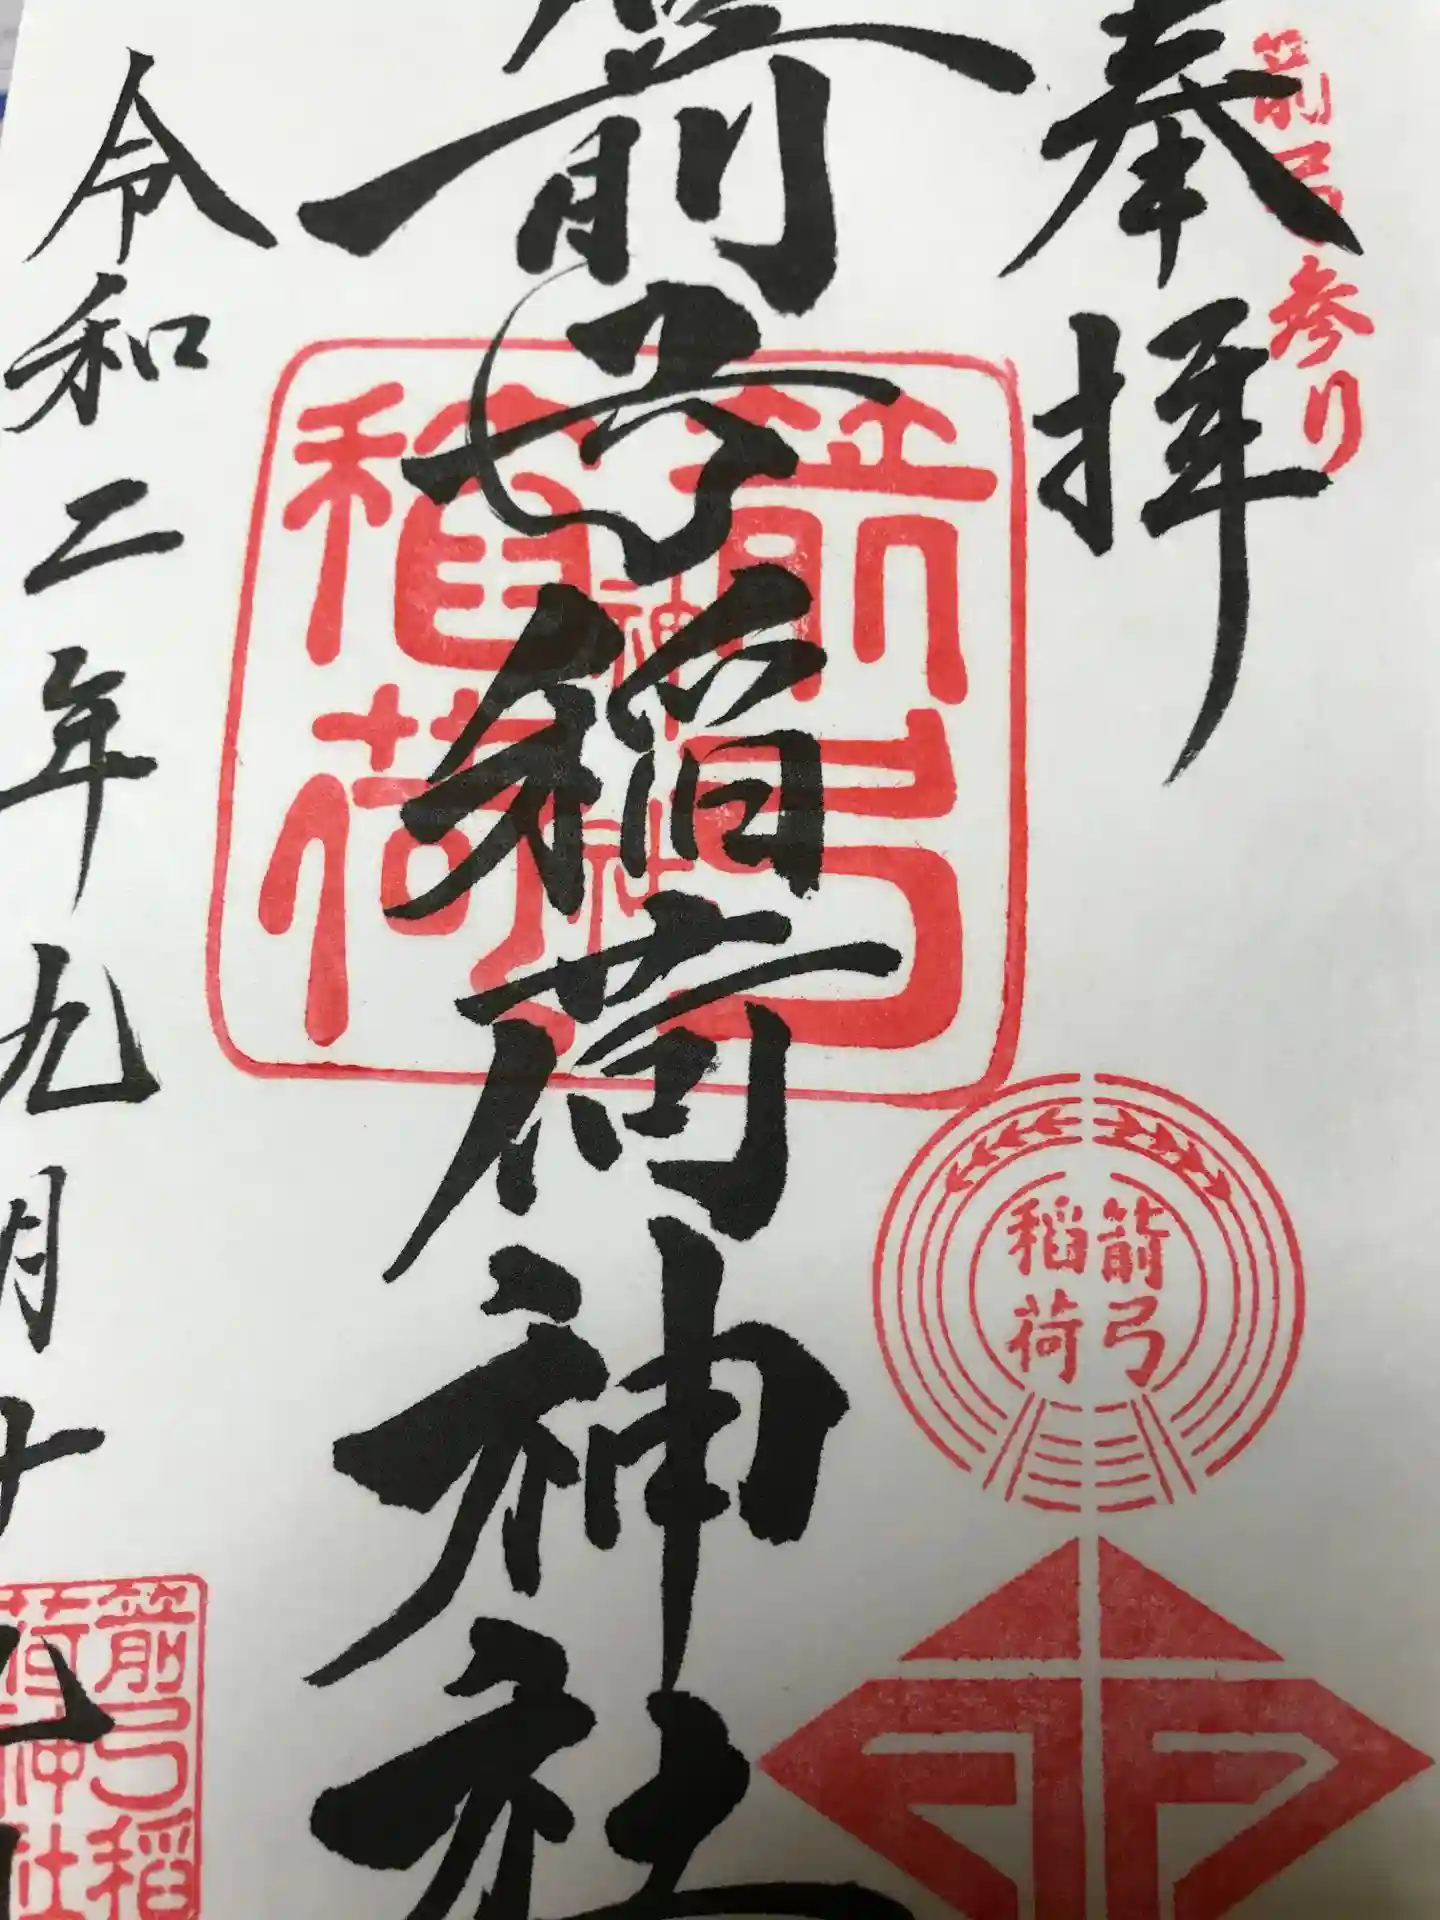 奉拝
箭弓参り
箭弓稲荷神社
令和二年九月十九日
箭弓
稲荷
神社
箭弓
稲荷
箭弓稲
荷神社